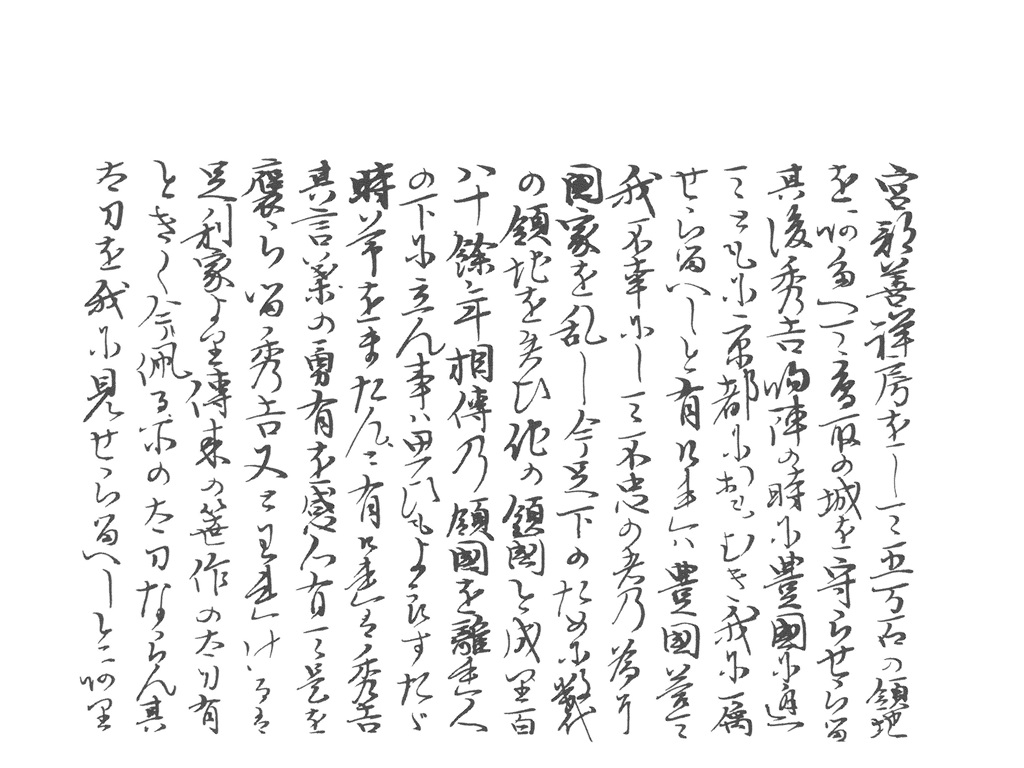 宮部善祥房をして五万石の領地
を阿多へて鳥取の城を守らせらる
其後秀吉帰陣の時に豊国に逢
てともに京都におもむき我に属
せらるへしと有けれは豊国答て
我不幸にして不忠の者乃為に
国家を乱し今足下のために数代
の領地を失ひ他の領国と成り百
八十餘年相傳乃領国を離れ人
の下に立ん事は思ひもよらすたゝ
時節をまたんと有けれは秀吉
其言葉の勇有を感心有て是を
褒らる秀吉又とわれけるは
足利家より傳来の笹作の太刀有
ときく今佩る所の太刀ならん其
太刀を我に見せらるへしとあり